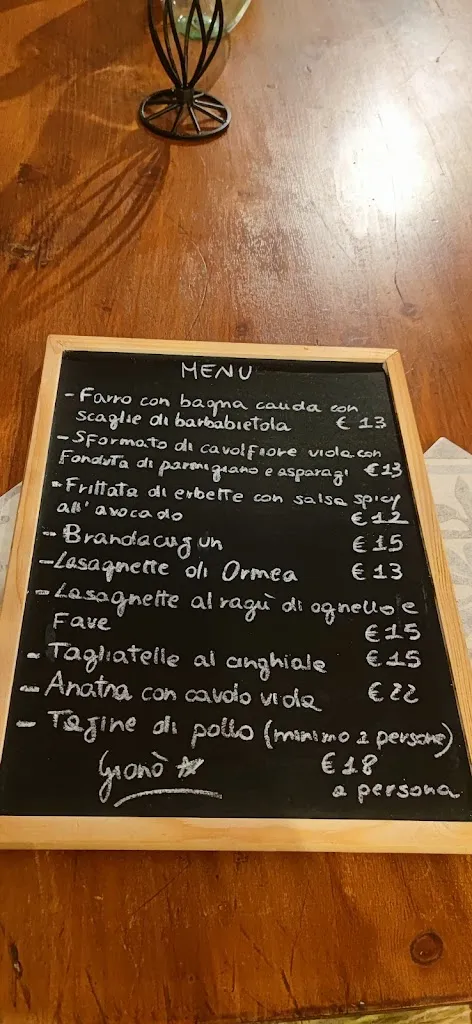 MENU
- Farro con bagna cauda con
scaglie di barbabietola € 13
- Sformato di cavolfiore viola con
Fonduta di parmigiano e asparagi €13
- Frittata di erbette con salsa spicy
all'avocado €12
- Brandacugun €15
- Lasagnette di Ormea €13
- Lasagnette al ragù di agnello e
Fave €15
- Tagliatelle al cinghiale €15
- Anatra con cavolo viola €22
- Tagine di pollo (minimo 2 persone)
Gionò €18
a persona